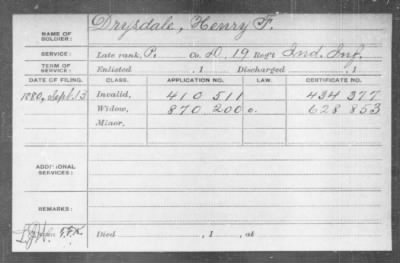 NAME OF SOLDIER: Drysdale, Henry F.
SERVICE: Late rank, P. Co. D, 19 Reg't Ind. Inf.
TERM OF SERVICE: Enlisted , 1 Discharged , 1
DATE OF FILING. CLASS. APPLICATION NO. LAW. CERTIFICATE NO.
1880, Sept. 13 Invalid, 410 511 434 377
Widow, 870 200 628 853
Minor,
ADDITIONAL SERVICES:
REMARKS:
Died , 1 , at